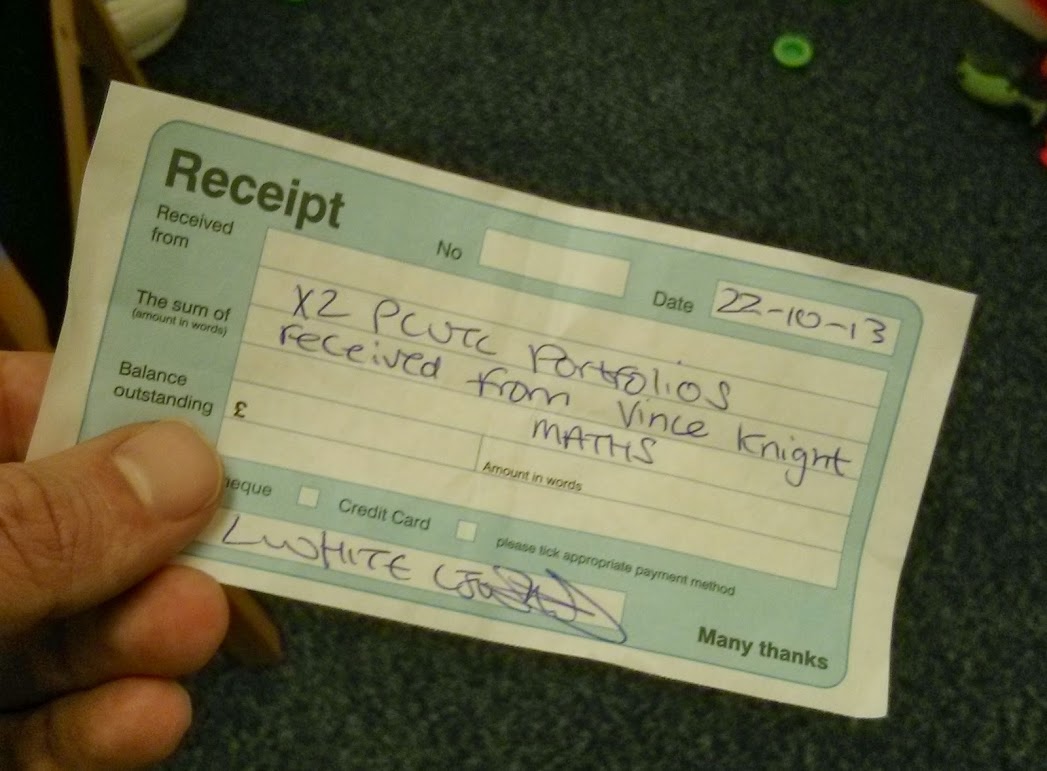 Receipt
No
Date 22-10-13
Received
from
The sum of
(amount in words)
X2 PCUTL Portfolios
received from Vince Knight
MATHS
Balance
outstanding £
Amount in words
heque Credit Card please tick appropriate payment method
L WHITE
Many thanks